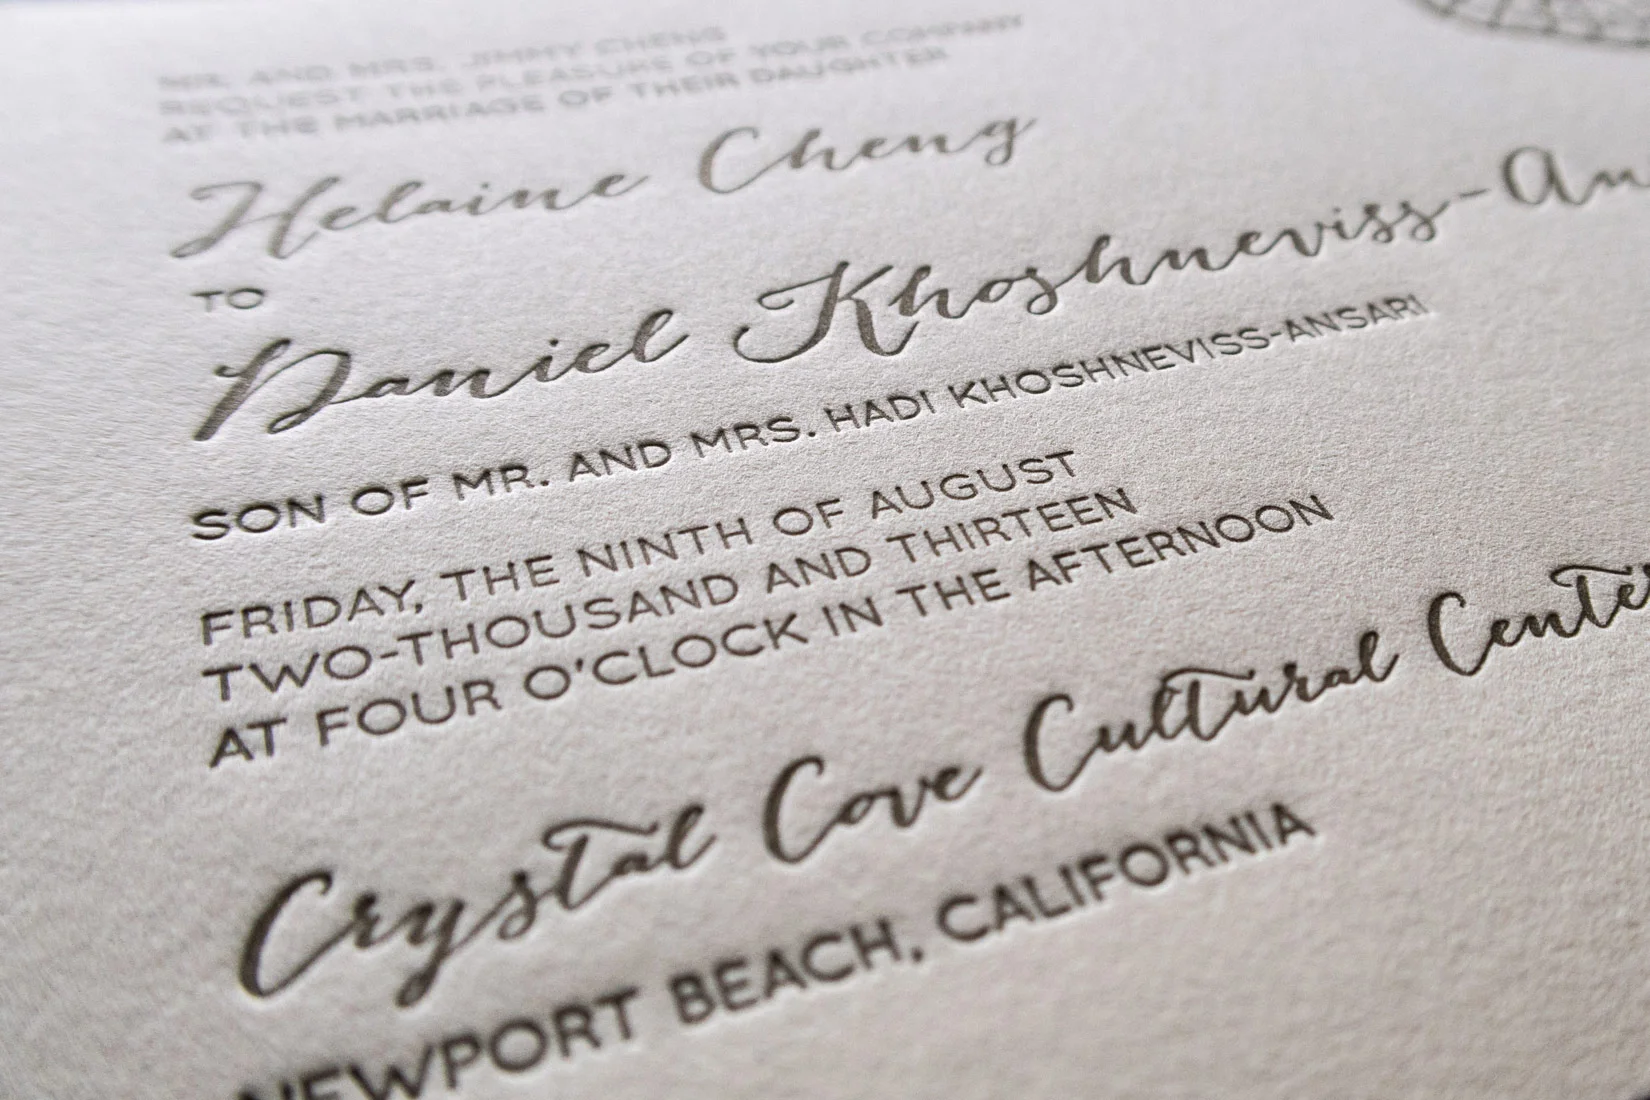 MR. AND MRS. JIMMY CHENG
REQUEST THE PLEASURE OF YOUR COMPANY
AT THE MARRIAGE OF THEIR DAUGHTER
Helaine Cheng
TO
Daniel Khoshneviss-An
SON OF MR. AND MRS. HADI KHOSHNEVISS-ANSARI
FRIDAY, THE NINTH OF AUGUST
TWO-THOUSAND AND THIRTEEN
AT FOUR O'CLOCK IN THE AFTERNOON
Crystal Cove Cultural Center
NEWPORT BEACH, CALIFORNIA